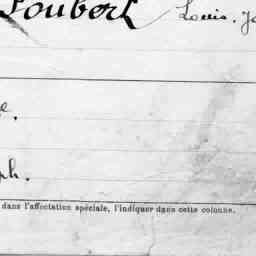 Joubert Louis, Jo
e.
ph.
dans l'affectation spéciale, l'indiquer dans cette colonne.